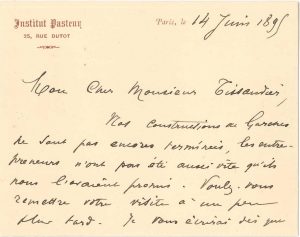 Institut Pasteur
25, RUE DUTOT
Paris, le 14 Juin 1895
Mon Cher Monsieur Tissandier,
Nos constructions de Garches
ne sont pas encores terminées, les entre-
preneurs n'ont pas été aussi vite qu'ils
nous l'avaient promis. Voulez-vous
remettre votre visite à un peu
plus tard. Je vous écrirai dès que